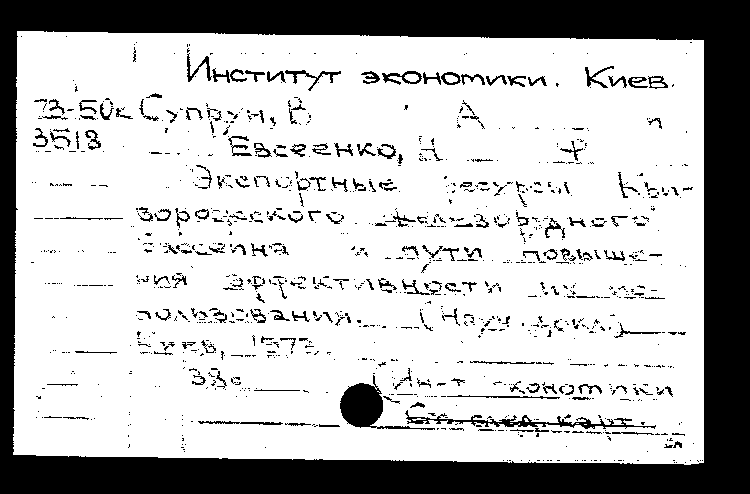 Институт экономики. Киев.
73-50к Супрун, В А и
3513 Евсеенко, Н Ф
Экспортные ресурсы Кри-
ворожского железорудного
бассейна и пути повыше-
ния эффективности их ис-
пользования. (Науч. докл.)
Киев, 1973.
38с (Ин-т экономики
См. след. карт.